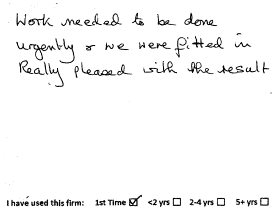 Work needed to be done
urgently & we were fitted in
Really pleased with the result
I have used this firm: 1st Time ☑ <2 yrs ☐ 2-4 yrs ☐ 5+ yrs ☐